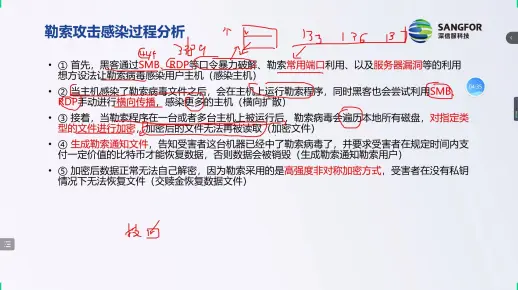 勒索攻击感染过程分析
SANGFOR
深信服科技
445 3389 133 136 137
① 首先，黑客通过SMB、RDP等口令暴力破解、勒索常用端口利用、以及服务器漏洞等的利用
想方设法让勒索病毒感染用户主机（感染主机）
② 当主机感染了勒索病毒文件之后，会在主机上运行勒索程序，同时黑客也会尝试利用SMB、
RDP手动进行横向传播，感染更多的主机（横向扩散）
③ 接着，当勒索程序在一台或者多台主机上被运行后，勒索病毒会遍历本地所有磁盘，对指定类
型的文件进行加密，加密后的文件无法再被读取（加密文件）
④ 生成勒索通知文件，告知受害者这台机器已经中了勒索病毒了，并要求受害者在规定时间内支
付一定价值的比特币才能恢复数据，否则数据会被销毁（生成勒索通知勒索用户）
⑤ 加密后数据正常无法自己解密，因为勒索采用的是高强度非对称加密方式，受害者在没有私钥
情况下无法恢复文件（交赎金恢复数据文件）